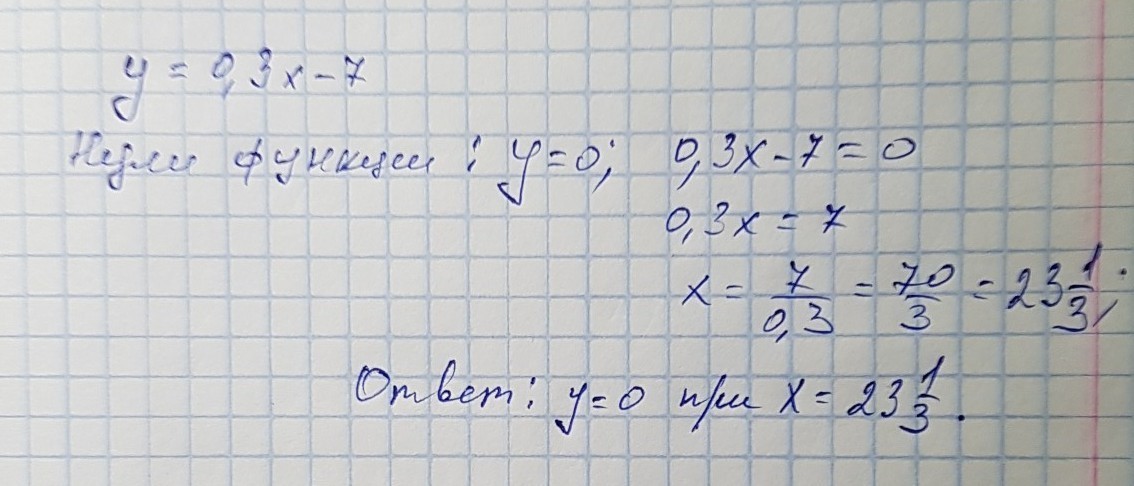 y = 0,3x - 7
Нули функции : y=0; 0,3x - 7 = 0
0,3x = 7
x = 7/0,3 = 70/3 = 23 1/3;
Ответ: y=0 при x = 23 1/3.